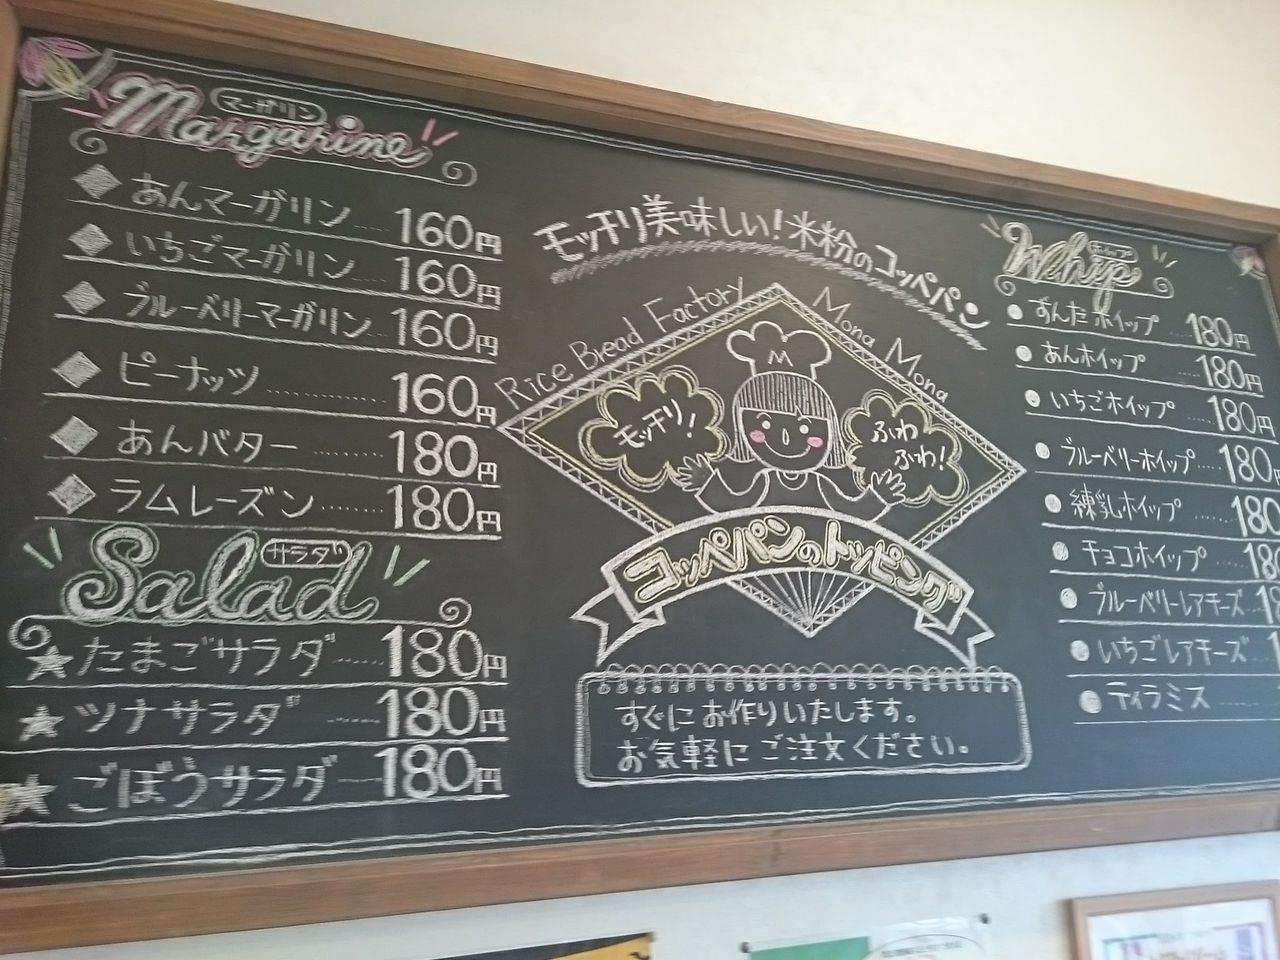 マーガリン
Margarine
あんマーガリン 160円
いちごマーガリン 160円
ブルーベリーマーガリン 160円
ピーナッツ 160円
あんバター 180円
ラムレーズン 180円
サラダ
Salad
たまごサラダ 180円
ツナサラダ 180円
ごぼうサラダ 180円
モッチリ美味しい!米粉のコッペパン
Rice Bread Factory Mona Mona
M
モッチリ!
ふわ
ふわ!
コッペパンのトッピング
すぐにお作りいたします。
お気軽にご注文ください。
ホイップ
Whip
ずんだホイップ 180円
あんホイップ 180円
いちごホイップ 180円
ブルーベリーホイップ 180
練乳ホイップ 180
チョコホイップ 180
ブルーベリーレアチーズ
いちごレアチーズ
ティラミス